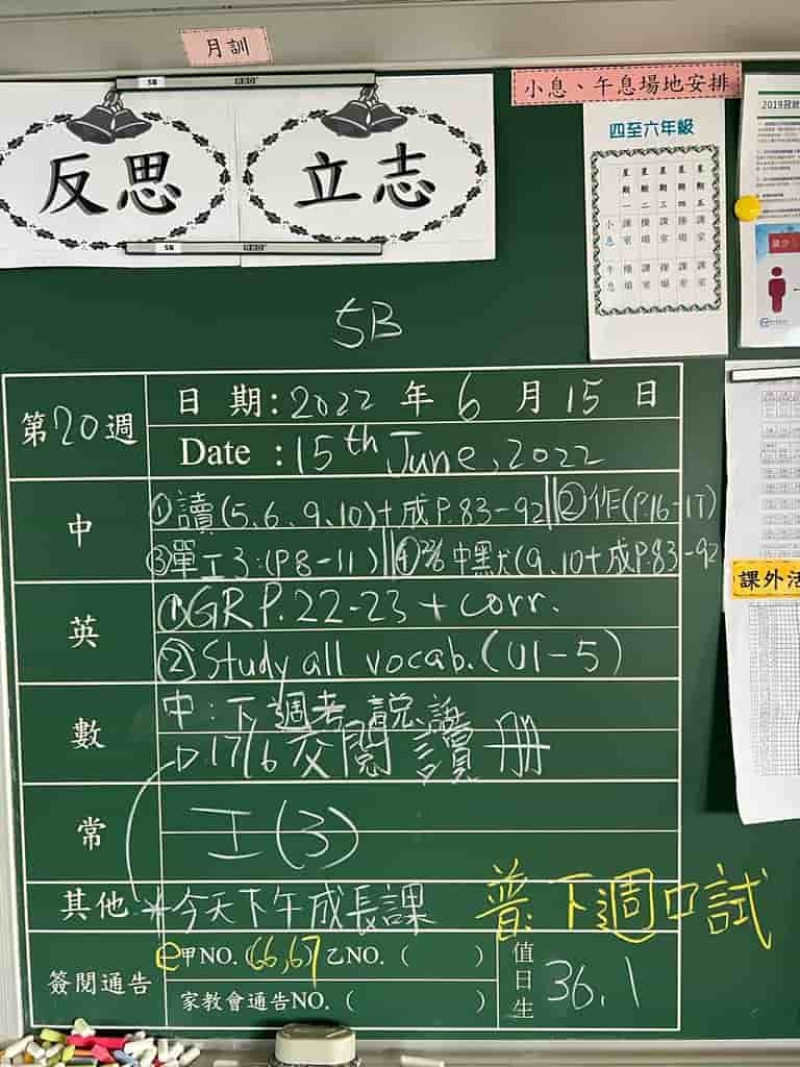 月訓
反思
立志
小息、午息場地安排
四至六年級
星期一 星期二 星期三 星期四 星期五
小息 課室 操場 課室 操場 課室
午息 操場 課室 課室 課室
2019冠
5B
第20週
日期:2022年6月15日
Date :15th June,2022
中
①讀(5、6、9、10)+成P.83-92||②作(P.16-17)
③單工3:(P8-11)||④22/6中默(9、10+成P.83-92
英
①GR P.22-23 + corr.
②Study all vocab.(U1-5)
數
中:下週考說話
17/6交閱讀冊
常
工(3)
其他
*今天下午成長課
普:下週口試
簽閱通告
e甲NO.(66,67 乙NO.( )
家教會通告NO.( )
值日生
36,1
課外活